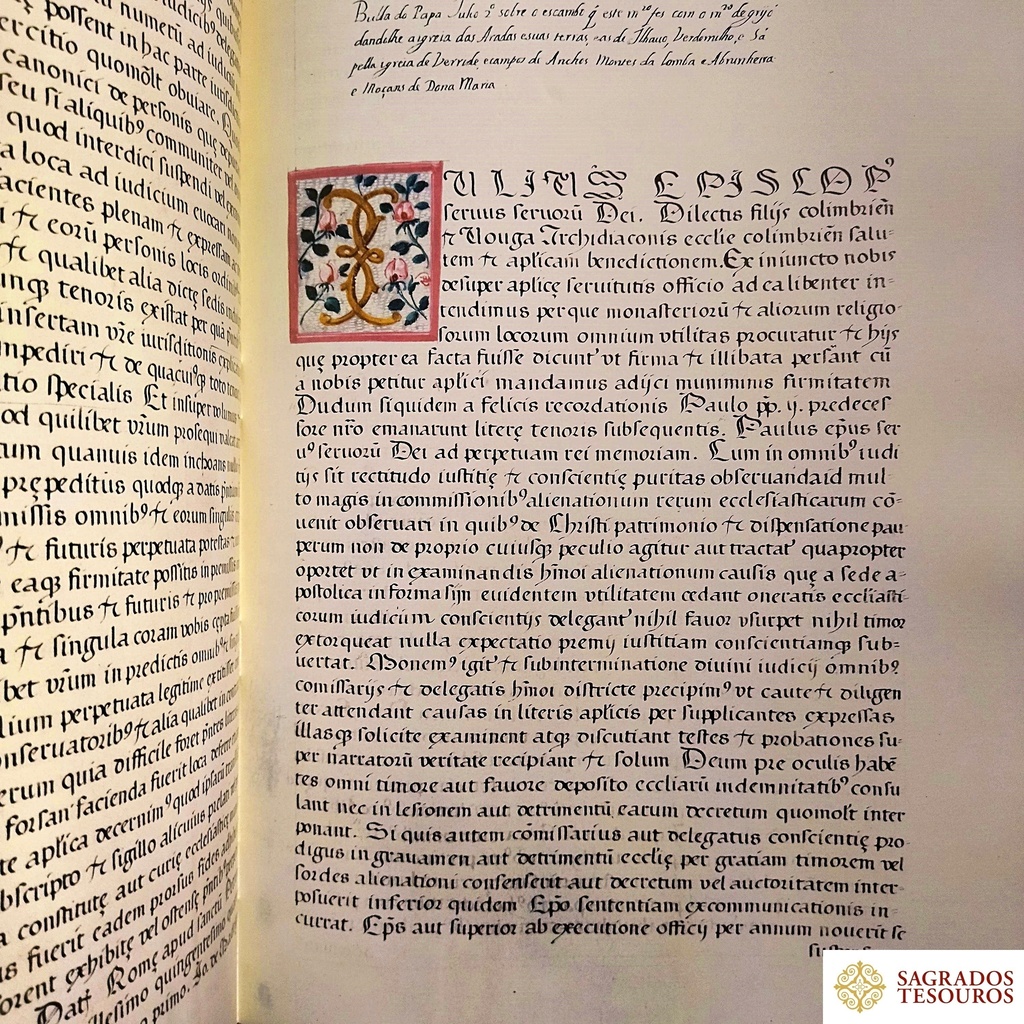 possent in hac parte iurisd
numerū ad iudiciū
ercitio quomōlt obuiare.
canonici de personis quę de
seu si aliquibꝰ communiter vel
quod interdici suspendi vel
a loca ad iudicium euocari
acientes plenam ⁊ expressam
⁊ eorū personis locis ordini
⁊ qualibet alia dictę sedis
unqꝫ tenoris existat per quā
insertam vr̄e iurisditionis
mpediri ⁊ de quacūqꝫ toto
tio specialis Et insuper
od quilibet vr̄um prosequi valeat
um quanuis idem inchoans
prępeditus quodqꝫ a datis pn̄tium
missis omnibꝰ ⁊ eorum singulis
⁊ futuris perpetuata potestas
eaqꝫ firmitate possitis in premissis
pn̄tibus ⁊ futuris ⁊ pro premissis
⁊ singula coram vobis cepta
bet vr̄um in predictis omnibꝰ
ium perpetuata legitime extitisset
nseruatoribꝰ ⁊ alia qualibet in contr
rum quia difficile foret pn̄tes literas
forsan facienda fuerit loca deferre
te aplīca decernimꝰ quod ipsarū
bscripto ⁊ sigillo alicuius
constitutę aut curię ecclesiasticę
us fuerit eadem prorsus fides
orent exhibitę vel ostensę pn̄tibꝰ
Datƭ Romę apud sanctū
illesimo quingentesimo
primo.
Bulla do Papa Julio 2º sobre o escambo q̃ este mº fes com o mº de grijó
dandolhe a igreia das Aradas e suas terras, e as de Ilhauo, Verdemilho, e Sá
pella igreia de Verride, e campos de Anches Montes da Lomba e Abrunheira
e Moçans de Dona Maria
IULIUS EPISCOPꝰ
seruus seruorū Dei. Dilectis filijs colimbrieñ
⁊ Uouga Archidiaconis ecclie colimbrieñ salu-
tem ⁊ aplicam benedictionem. Ex iniuncto nobis
desuper aplicę seruitutis officio ad ea libenter in-
tendimus per que monasteriorū ⁊ aliorum religio-
sorum locorum omnium vtilitas procuratur ⁊ hijs
quę propterea facta fuisse dicuntᷣ vt firma ⁊ illibata persāt cū
a nobis petitur aplici mandamus adijci muminus firmitatem
Dudum siquidem a felicis recordationis Paulo pp. ij. predeces
sore nr̄o emanarunt literę tenoris subsequentis. Paulus ep̄us ser
uꝰ seruorū Dei ad perpetuam rei memoriam. Cum in omnibꝰ iudi
tijs sit rectitudo iustitię ⁊ conscientię puritas obseruanda id mul
to magis in commissionibꝰ alienationum rerum ecclesiasticarum cō-
uenit obseruari in quibꝰ de Christi patrimonio ⁊ dispensatione pau
perum non de proprio cuiusqꝫ peculio agitur aut tractatᷣ quapropter
oportet vt in examinandis hm̄oi alienationum causis quę a sede a-
postolica in forma sijn euidentem vtilitatem cedant oneratis ecclīasti-
corum iudicium conscientijs delegantᷣ nihil fauor vsurpet nihil timor
extorqueat nulla expectatio premij iustitiam conscientiamqꝫ sub-
uertat. Monemꝰ igitᷣ ⁊ subinterminatione diuini iudicij omnibꝰ
comissarijs ⁊ delegatis hm̄oi districte precipimꝰ vt caute ⁊ diligen
ter attendant causas in literis aplicis per supplicantes expressas
illasqꝫ solicite examinent atqꝫ discutiant testes ⁊ probationes su-
per narratorū veritate recipiant ⁊ solum Deum pre oculis habē
tes omni timore aut fauore deposito eccliarū indemnitatibꝰ consu
lant nec in lesionem aut detrimentū earum decretum quomolt inter
ponant. Si quis autem cōmissarius aut delegatus conscientię pro-
digus in grauamen aut detrimentū ecclię per gratiam timorem vel
sordes alienationi consenserit aut decretum vel auctoritatem inter-
posuerit inferior quidem Epo sententiam excommunicationis in-
currat. Eps aut superior ab executione officij per annum nouerit se
SAGRADOS
TESOUROS